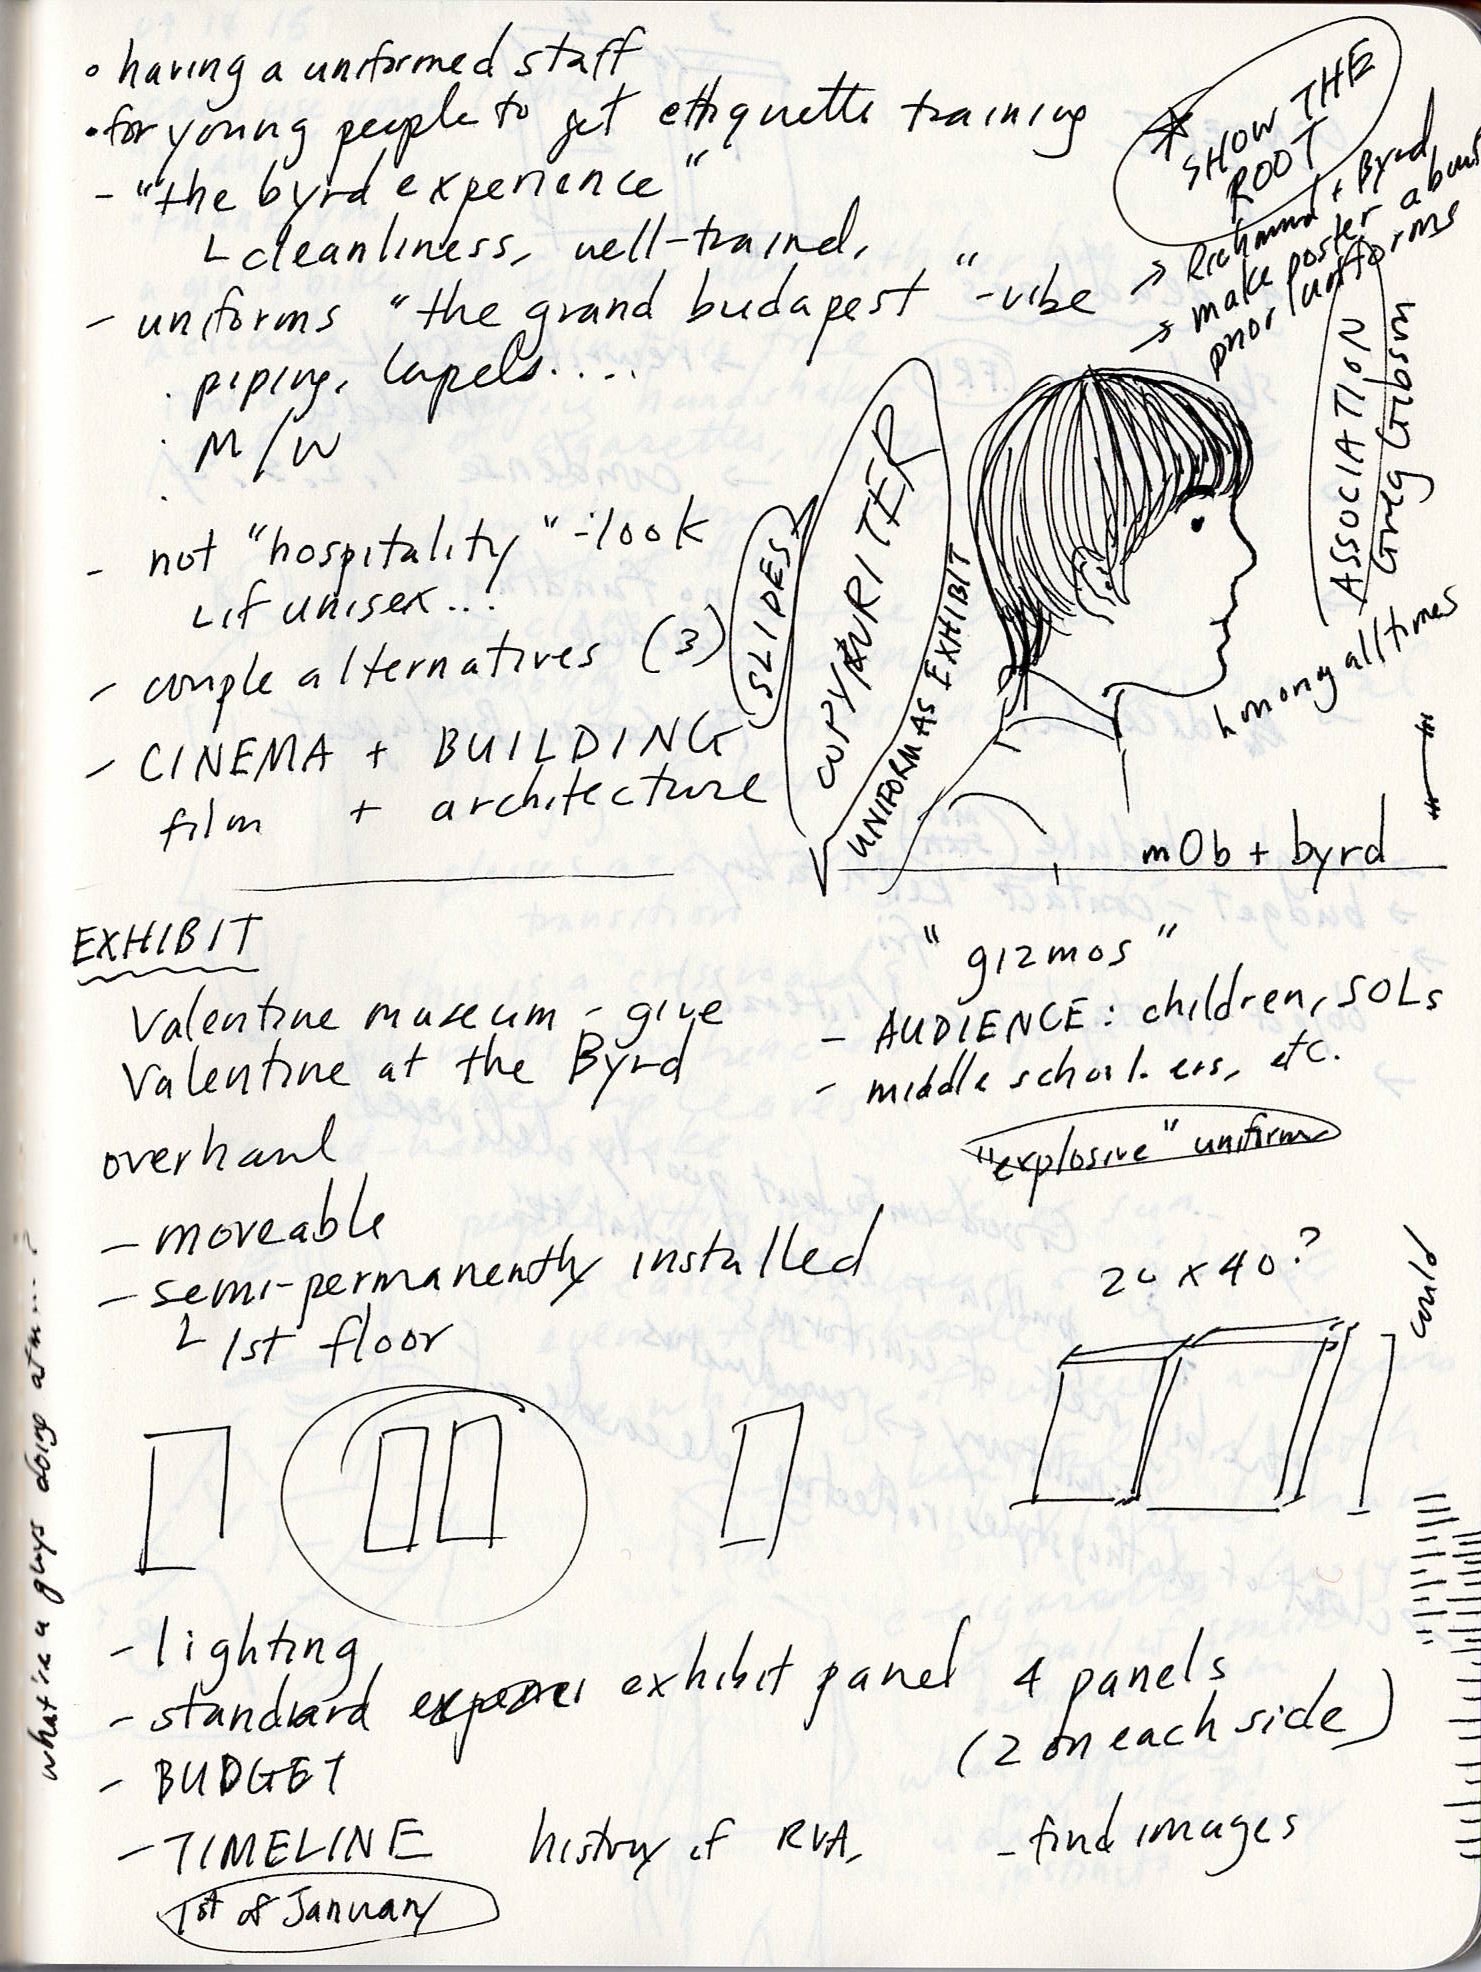 • having a uniformed staff
• for young people to get ettiquette training
- "the byrd experience"
cleanliness, well-traind,
- uniforms "the grand budapest" -vibe
piping, lapels....
M/W
- not "hospitality" - look
if unisex...
- couple alternatives (3)
- CINEMA + BUILDING
film + architecture
* SHOW THE
ROOT
→ Richmond + Byrd
→ make poster about
prior uniforms
ASSOCIATION
Greg Gibson
SLIDES
COPYWRITER
UNIFORM AS EXHIBIT
among all times
mOb + byrd
EXHIBIT
Valentine museum - give
Valentine at the Byrd
overhaul
- moveable
- semi-permanently installed
1st floor
"gizmos"
- AUDIENCE: children, SOLs
- middle schoolers, etc.
"explosive" uniform
20 x 40?
could
what're u guys doing atm...?
- lighting
- standard exhibit panel 4 panels
(2 on each side)
- BUDGET
- TIMELINE history of RVA, - find images
1st of January